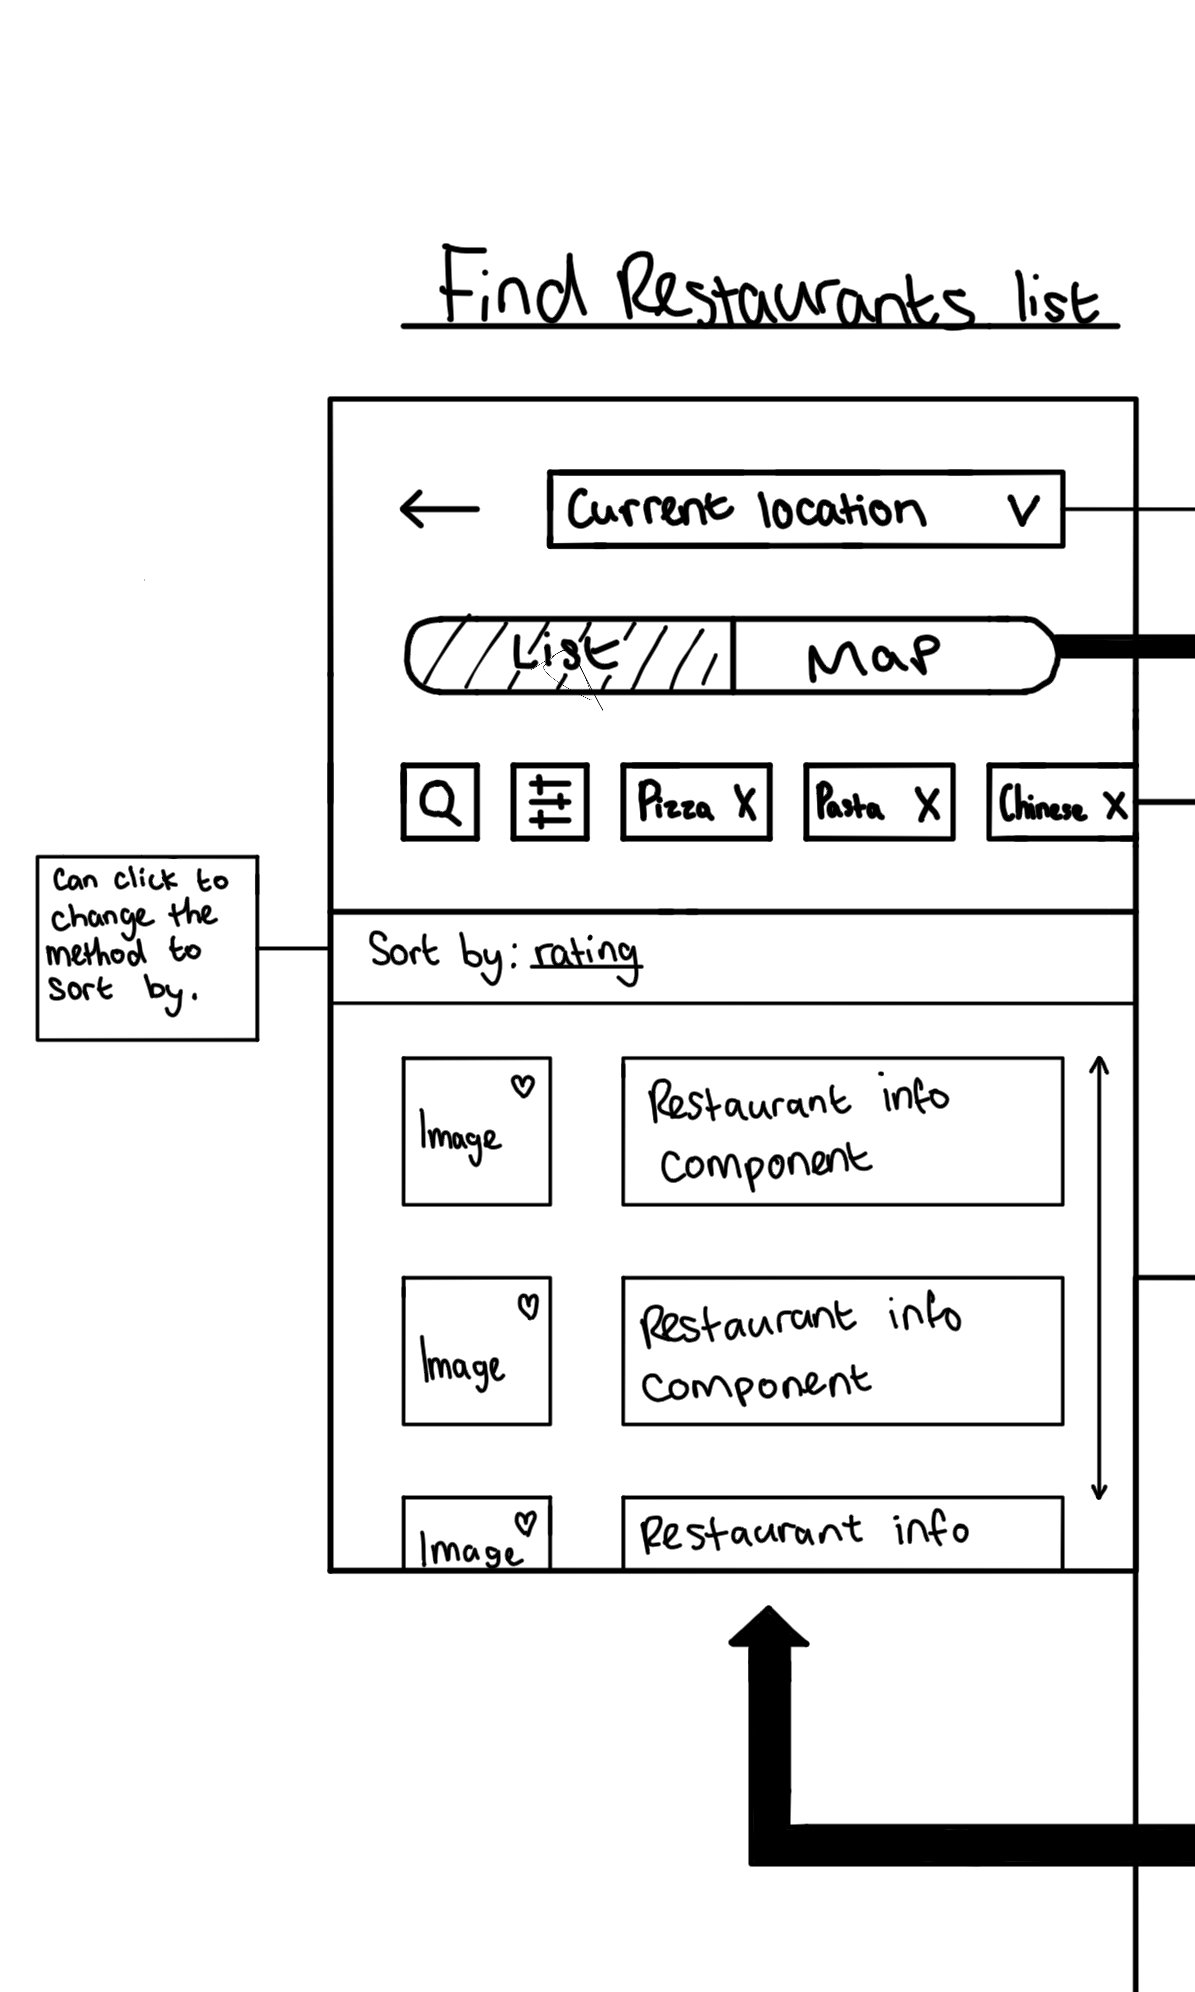 Find Restaurants list
Current location V
List Map
Pizza X Pasta X Chinese X
Can click to
change the
method to
sort by.
Sort by: rating
Image
Restaurant info
component
Image
Restaurant info
component
Image
Restaurant info